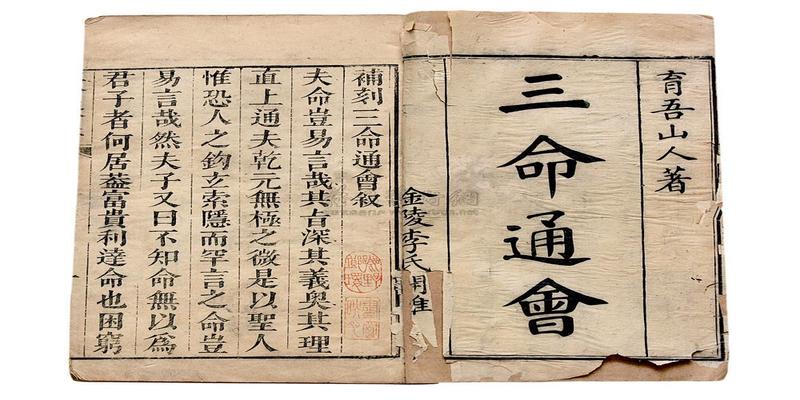 育吾山人著
三命通會
金陵李氏
補刻三命通會叙
夫命豈易言哉其旨深其義奥其理
直上通夫乾元無極之微是以聖人
惟恐人之鉤玄索隱而罕言之命豈
易言哉然夫子又曰不知命無以爲
君子者何居葢富貴利達命也困窮